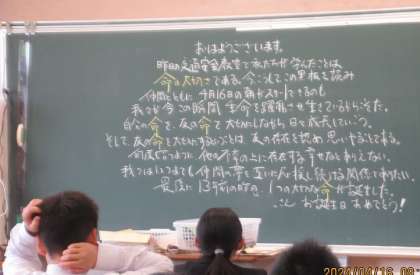 おはようございます。
昨日の交通安全教室で私たちが学んだことは、
命の大切さである。今こうしてこの黒板を読み
仲間とともに 4月16日の朝がスタートできるのも
我々が今この瞬間 生命を躍動させ生きているからなのだ。
自らの命を、友の命を大切にしながら日々成長していこう。
そして友の命を大切にするということは 友の存在を認め 思いやることである。
何度も言うように 他の不幸の上に存在する幸せなどありえない。
我々はいつまでも 仲間の帯を 互いに 続ける関係でありたい。
最後に 13年前の昨日、1つの大切な命が誕生しました。
さん お誕生日おめでとう!
2024/04/16 08